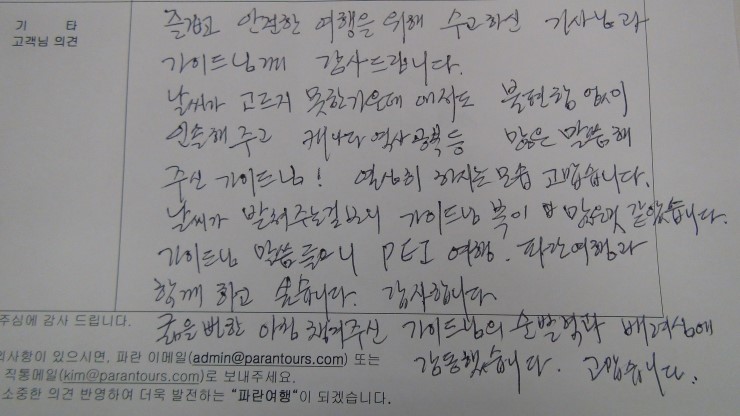 기 타
고객님 의견
즐겁고 안전한 여행을 위해 수고하신 기사님과
가이드님께 감사드립니다.
날씨가 고르지 못한가운데 에서도 불편함 없이
인솔해 주고 캐나다 역사 등 많은 말씀해
주신 가이드님! 열심히 하시는 모습 고맙습니다.
날씨가 받쳐주는걸보니 가이드님 복이 많은것 같았습니다.
가이드님 말씀 들으니 PEI 여행. 파란여행과
함께 하고 싶습니다. 감사합니다.
주심에 감사 드립니다.
굶을뻔한 아침 챙겨주신 가이드님의 순발력과 배려심에
감동했습니다. 고맙습니다.
의사항이 있으시면, 파란 이메일(admin@parantours.com) 또는
직통메일(kim@parantours.com)로 보내주세요.
소중한 의견 반영하여 더욱 발전하는 "파란여행"이 되겠습니다.